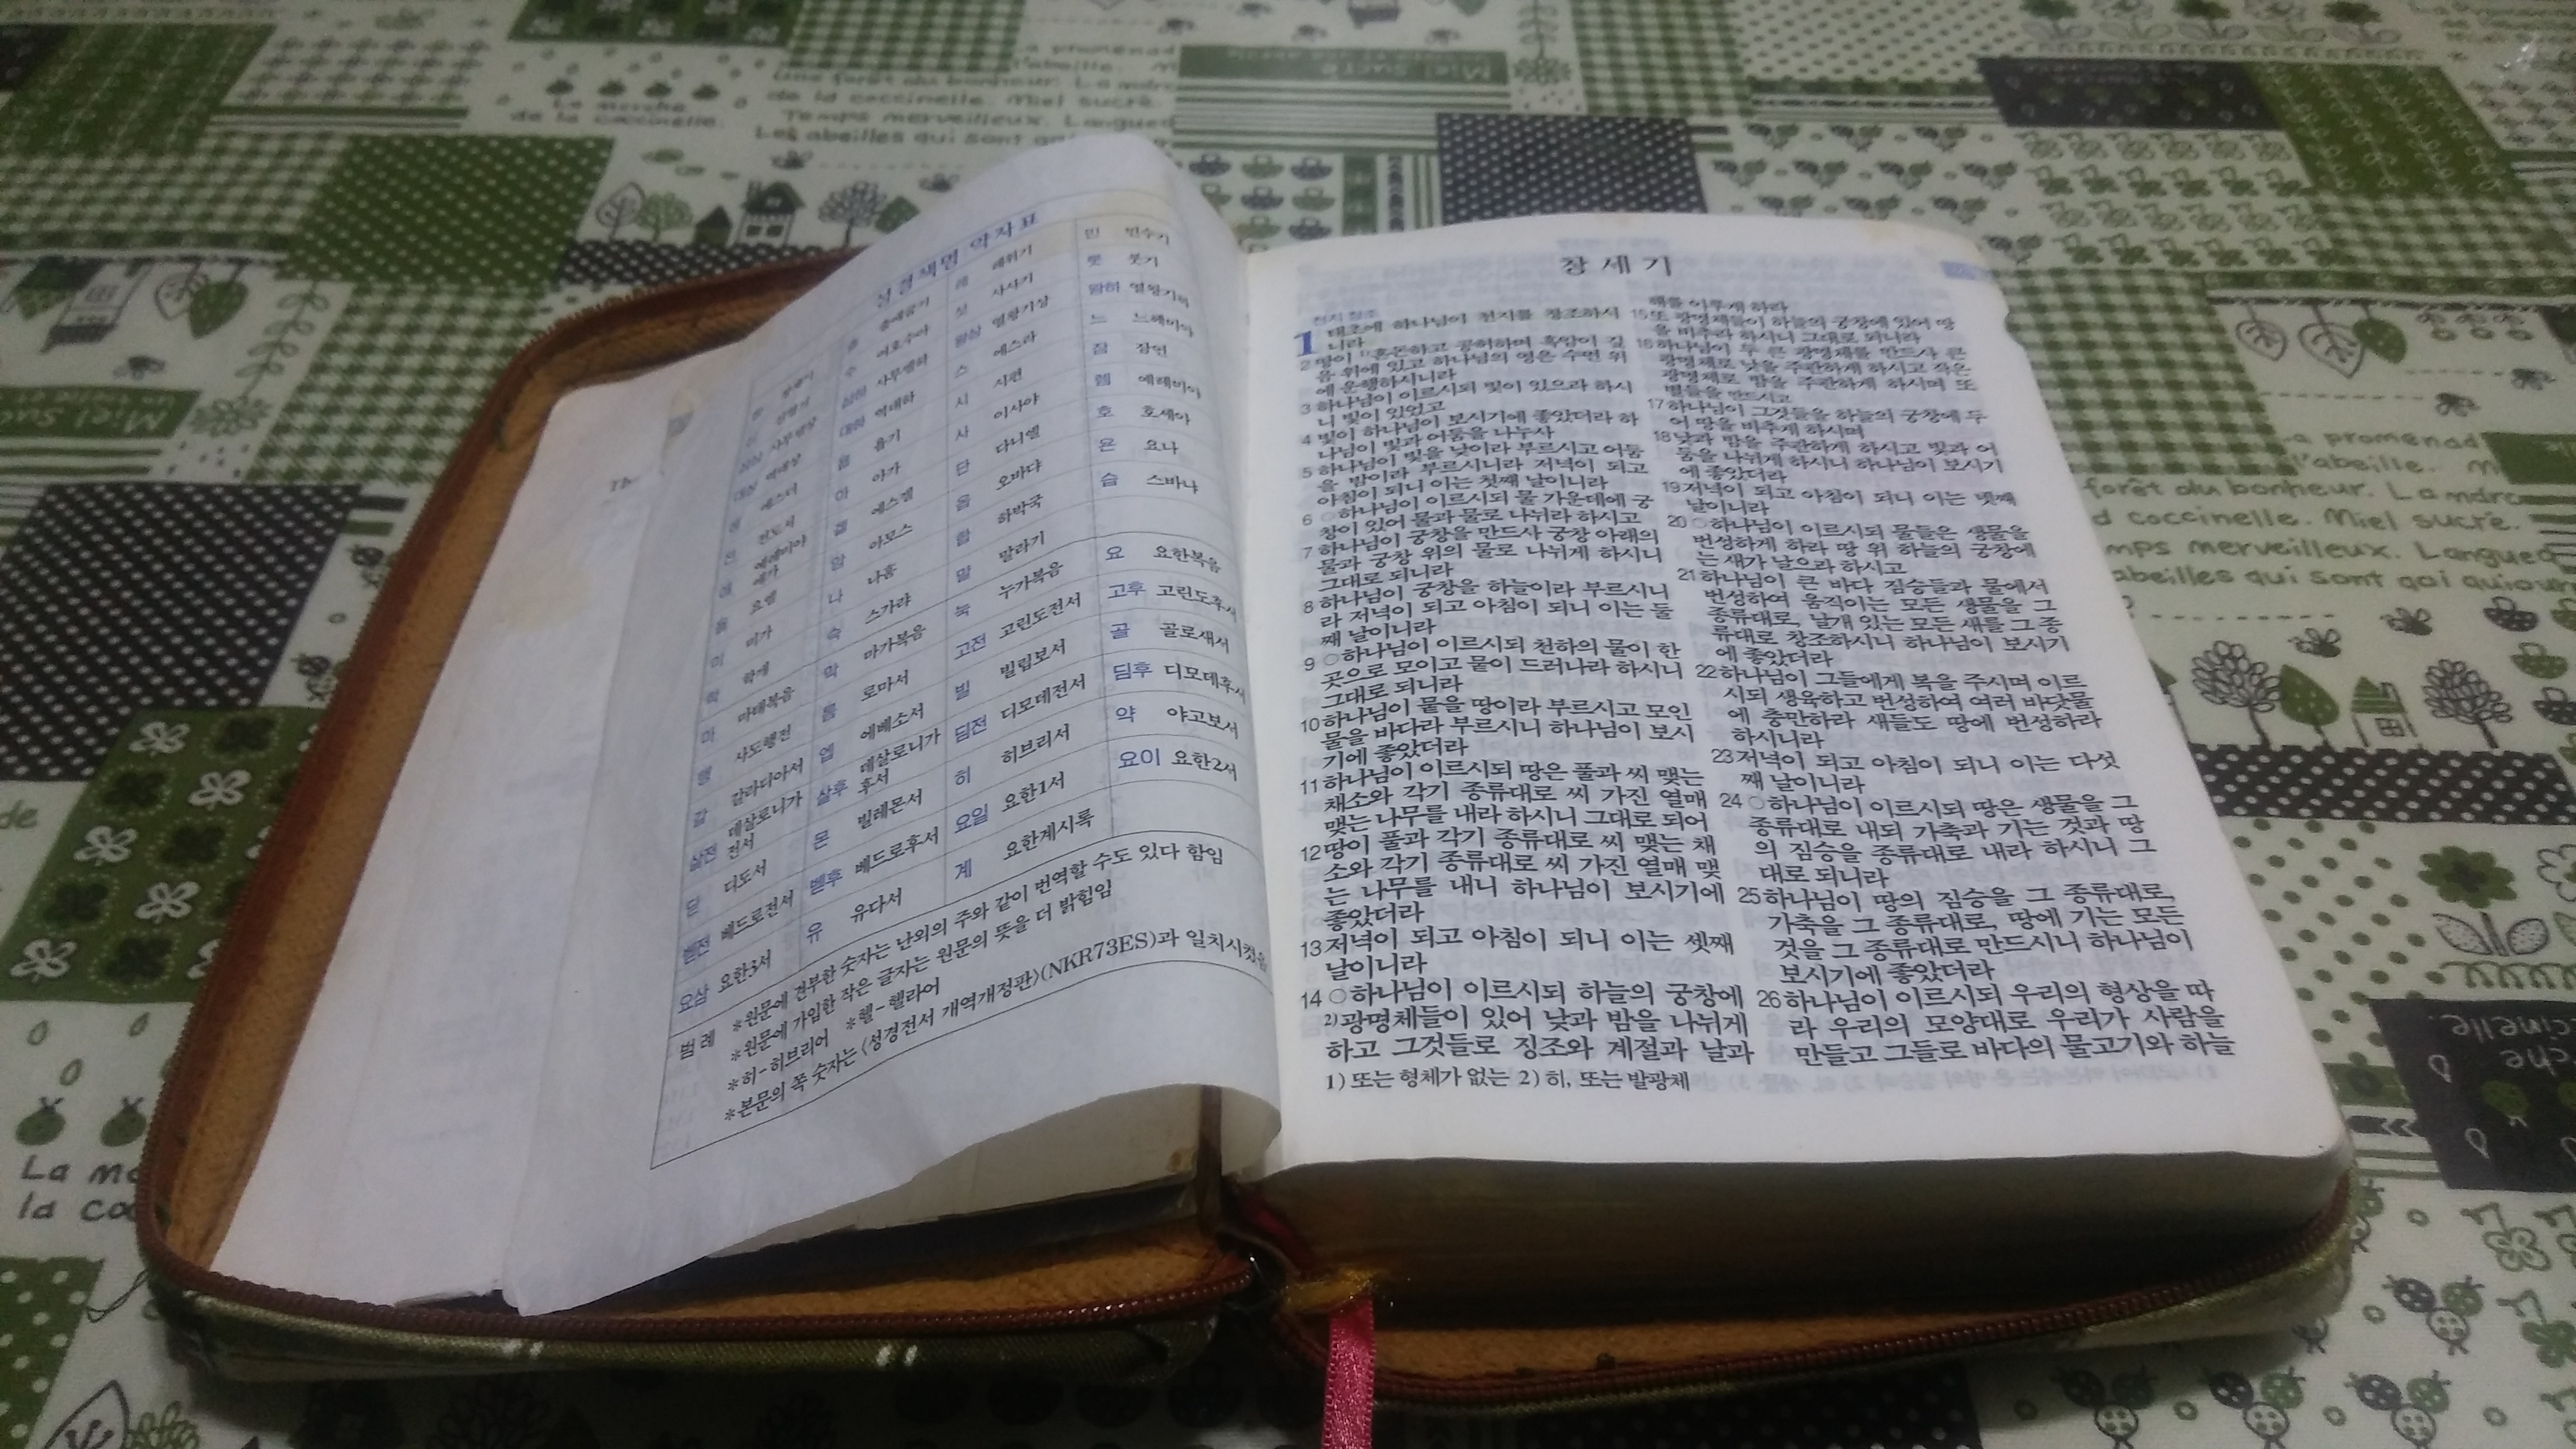 성경책명 약자표
출 출애굽기 레 레위기 민 민수기
수 여호수아 삿 사사기 룻 룻기
삼하 사무엘하 왕상 열왕기상 왕하 열왕기하
대하 역대하 스 에스라 느 느헤미야
욥 욥기 시 시편 잠 잠언
아 아가 사 이사야 렘 예레미야
겔 에스겔 단 다니엘 호 호세아
암 아모스 옵 오바댜 욘 요나
나 나훔 합 하박국 습 스바냐
학 학개 슥 스가랴 말 말라기
마 마태복음 막 마가복음 눅 누가복음 요 요한복음
행 사도행전 롬 로마서 고전 고린도전서 고후 고린도후서
갈 갈라디아서 엡 에베소서 빌 빌립보서 골 골로새서
살전 데살로니가전서 살후 데살로니가후서 딤전 디모데전서 딤후 디모데후서
딛 디도서 몬 빌레몬서 히 히브리서 약 야고보서
벧전 베드로전서 벧후 베드로후서 요일 요한1서 요이 요한2서
요삼 요한3서 유 유다서 계 요한계시록
범례 *원문에 견부한 숫자는 난외의 주와 같이 번역할 수도 있다 함임
*원문에 가입한 작은 글자는 원문의 뜻을 더 밝힘임
*히-히브리어 *헬-헬라어
*본문의 쪽 숫자는 〈성경전서 개역개정판〉(NKR73ES)과 일치시켰음
창세기
천지 창조
1 태초에 하나님이 천지를 창조하시
니라
2 땅이 1)혼돈하고 공허하며 흑암이 깊
음 위에 있고 하나님의 영은 수면 위
에 운행하시니라
3 하나님이 이르시되 빛이 있으라 하시
니 빛이 있었고
4 빛이 하나님이 보시기에 좋았더라 하
나님이 빛과 어둠을 나누사
5 하나님이 빛을 낮이라 부르시고 어둠
을 밤이라 부르시니라 저녁이 되고
아침이 되니 이는 첫째 날이니라
6 ○하나님이 이르시되 물 가운데에 궁
창이 있어 물과 물로 나뉘라 하시고
7 하나님이 궁창을 만드사 궁창 아래의
물과 궁창 위의 물로 나뉘게 하시니
그대로 되니라
8 하나님이 궁창을 하늘이라 부르시니
라 저녁이 되고 아침이 되니 이는 둘
째 날이니라
9 ○하나님이 이르시되 천하의 물이 한
곳으로 모이고 뭍이 드러나라 하시니
그대로 되니라
10 하나님이 뭍을 땅이라 부르시고 모인
물을 바다라 부르시니 하나님이 보시
기에 좋았더라
11 하나님이 이르시되 땅은 풀과 씨 맺는
채소와 각기 종류대로 씨 가진 열매
맺는 나무를 내라 하시니 그대로 되어
12 땅이 풀과 각기 종류대로 씨 맺는 채
소와 각기 종류대로 씨 가진 열매 맺
는 나무를 내니 하나님이 보시기에
좋았더라
13 저녁이 되고 아침이 되니 이는 셋째
날이니라
14 ○하나님이 이르시되 하늘의 궁창에
2)광명체들이 있어 낮과 밤을 나뉘게
하고 그것들로 징조와 계절과 날과
해를 이루게 하라
15 또 광명체들이 하늘의 궁창에 있어 땅
을 비추라 하시니 그대로 되니라
16 하나님이 두 큰 광명체를 만드사 큰
광명체로 낮을 주관하게 하시고 작은
광명체로 밤을 주관하게 하시며 또
별들을 만드시고
17 하나님이 그것들을 하늘의 궁창에 두
어 땅을 비추게 하시며
18 낮과 밤을 주관하게 하시고 빛과 어
둠을 나뉘게 하시니 하나님이 보시기
에 좋았더라
19 저녁이 되고 아침이 되니 이는 넷째
날이니라
20 ○하나님이 이르시되 물들은 생물을
번성하게 하라 땅 위 하늘의 궁창에
는 새가 날으라 하시고
21 하나님이 큰 바다 짐승들과 물에서
번성하여 움직이는 모든 생물을 그
종류대로, 날개 있는 모든 새를 그 종
류대로 창조하시니 하나님이 보시기
에 좋았더라
22 하나님이 그들에게 복을 주시며 이르
시되 생육하고 번성하여 여러 바닷물
에 충만하라 새들도 땅에 번성하라
하시니라
23 저녁이 되고 아침이 되니 이는 다섯
째 날이니라
24 ○하나님이 이르시되 땅은 생물을 그
종류대로 내되 가축과 기는 것과 땅
의 짐승을 종류대로 내라 하시니 그
대로 되니라
25 하나님이 땅의 짐승을 그 종류대로,
가축을 그 종류대로, 땅에 기는 모든
것을 그 종류대로 만드시니 하나님이
보시기에 좋았더라
26 하나님이 이르시되 우리의 형상을 따
라 우리의 모양대로 우리가 사람을
만들고 그들로 바다의 물고기와 하늘
1) 또는 형체가 없는 2) 히, 또는 발광체
La marche
de la coccinelle.
de la coccinelle. Miel sucré.
Temps merveilleux. Langued
Les abeilles qui sont
Miel sucré
a promenad
l'abeille. M
forêt du bonheur. La marc
coccinelle. Miel sucré.
mps merveilleux. Langued
abeilles qui sont qai quiou